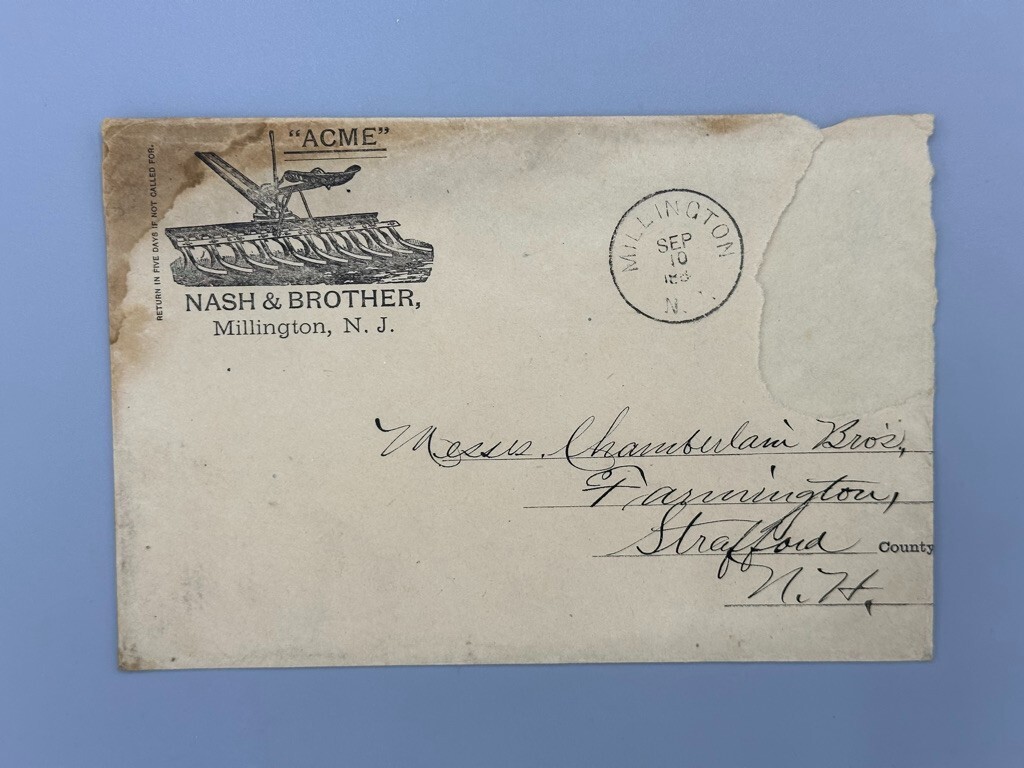 RETURN IN FIVE DAYS IF NOT CALLED FOR.
"ACME"
NASH & BROTHER,
Millington, N. J.
MILLINGTON
SEP
10
N.
Messrs. Chamberlain Bro's,
Farmington,
Strafford County
N.H.